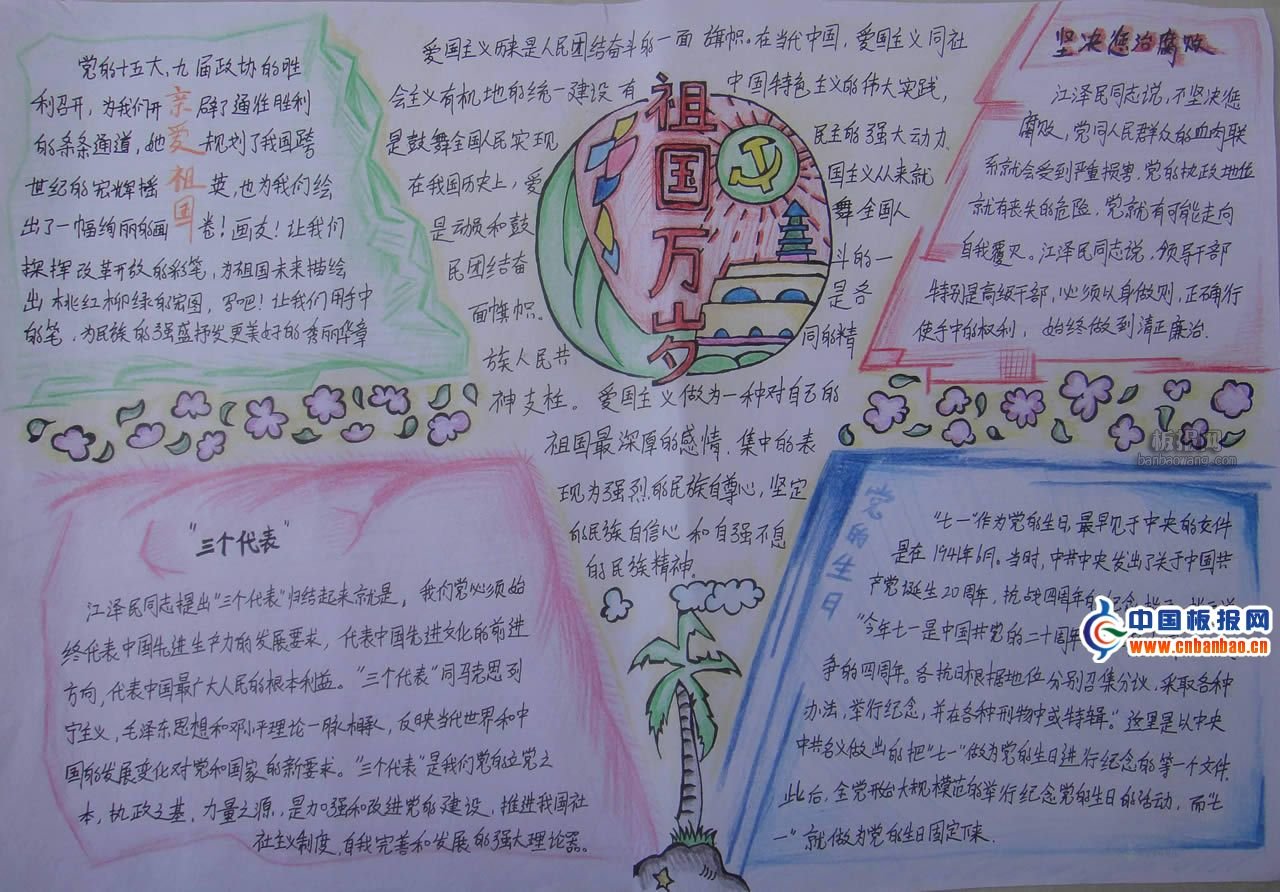 党的十五大,九届政协的胜
利召开,为我们开辟了通往胜利
的条条通道,她规划了我国跨
世纪的宏辉摇英,也为我们绘
出了一幅绚丽的画卷!画友!让我们
探挥改革开放的彩笔,为祖国未来描绘
出桃红柳绿的宏图,写吧!让我们用手中
的笔,为民族的强盛抒发更美好的秀丽华章
亲爱祖国
爱国主义历来是人民团结奋斗的一面旗帜。在当代中国,爱国主义同社
会主义有机地的统一建设有中国特色主义的伟大实践,
是鼓舞全国人民实现民主的强大动力.
在我国历史上,爱国主义从来就
是动员和鼓舞全国人
民团结奋斗的一
面旗帜。是各
族人民共同的精
神支柱。爱国主义做为一种对自己的
祖国最深厚的感情.集中的表
现为强烈的民族自尊心,坚定
的民族自信心和自强不息
的民族精神.
祖国万岁
坚决惩治腐败
江泽民同志说,不坚决惩
腐败,党同人民群众的血肉联
系就会受到严重损害,党的执政地位
就有丧失的危险,党就有可能走向
自我覆灭。江泽民同志说,领导干部
特别是高级干部,必须以身做则,正确行
使手中的权利,始终做到清正廉洽.
板报网
banbaowang.com
"三个代表"
江泽民同志提出"三个代表"归结起来就是,我们党必须始
终代表中国先进生产力的发展要求,代表中国先进文化的前进
方向,代表中国最广大人民的根本利益。"三个代表"同马克思列
宁主义,毛泽东思想和邓小平理论一脉相承,反映当代世界和中
国的发展变化对党和国家的新要求。"三个代表"是我们党的立党之
本,执政之基,力量之源,是加强和改进党的建设,推进我国社
社主义制度,自我完善和发展的强大理论器。
党的生日
"七一"作为党的生日,最早见于中央的文件
是在1941年6月。当时,中共中央发出了关于中国共
产党诞生20周年,抗战四周年的纪念
"今年七一是中国共党的二十周年
争的四周年。各抗日根据地位分别召集分议,采取各种
办法,举行纪念,并在各种刊物中或特辑。"这里是以中央
中共名义做出的把"七一"做为党的生日进行纪念的等一个文件.
此后,全党开始大规模范的举行纪念党的生日的活动,而"七
一"就做为党的生日固定下来.
中国板报网
www.cnbanbao.cn